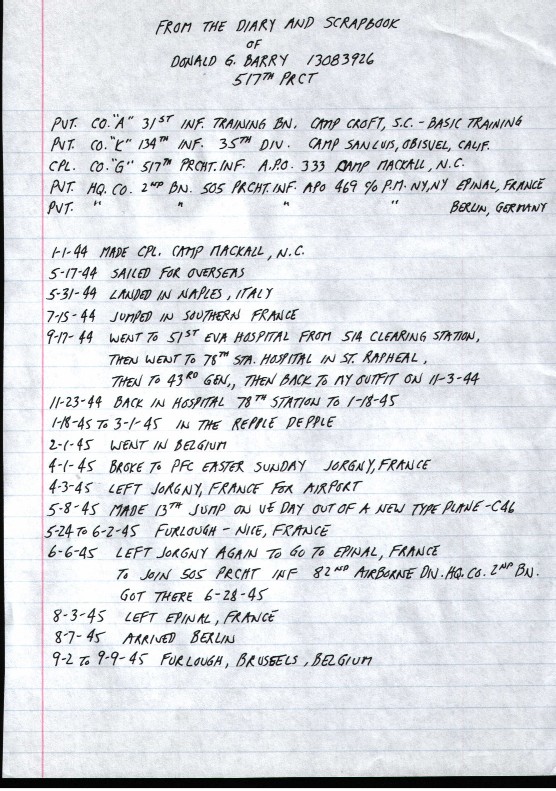 FROM THE DIARY AND SCRAPBOOK
OF
DONALD G. BARRY 13083926
517TH PRCT
PVT. CO. "A" 31ST INF. TRAINING BN. CAMP CROFT, S.C. - BASIC TRAINING
PVT. CO. "K" 134TH INF. 35TH DIV. CAMP SAN LUIS, OBISUEL, CALIF.
CPL. CO. "G" 517TH PRCHT. INF. A.P.O. 333 CAMP MACKALL, N.C.
PVT. HQ. CO. 2ND BN. 505 PRCHT. INF. APO 469 % P.M. NY, NY EPINAL, FRANCE
PVT. " " " " BERLIN, GERMANY
1-1-44 MADE CPL. CAMP MACKALL, N.C.
5-17-44 SAILED FOR OVERSEAS
5-31-44 LANDED IN NAPLES, ITALY
7-15-44 JUMPED IN SOUTHERN FRANCE
9-17-44 WENT TO 51ST EVA HOSPITAL FROM 514 CLEARING STATION,
THEN WENT TO 78TH STA. HOSPITAL IN ST. RAPHEAL,
THEN TO 43RD GEN,, THEN BACK TO MY OUTFIT ON 11-3-44
11-23-44 BACK IN HOSPITAL 78TH STATION TO 1-18-45
1-18-45 TO 3-1-45 IN THE REPPLE DEPPLE
2-1-45 WENT IN BELGIUM
4-1-45 BROKE TO PFC EASTER SUNDAY JORGNY, FRANCE
4-3-45 LEFT JORGNY, FRANCE FOR AIRPORT
5-8-45 MADE 13TH JUMP ON VE DAY OUT OF A NEW TYPE PLANE - C46
5-24 TO 6-2-45 FURLOUGH - NICE, FRANCE
6-6-45 LEFT JORGNY AGAIN TO GO TO EPINAL, FRANCE
TO JOIN 505 PRCHT INF 82ND AIRBORNE DIV. HQ. CO. 2ND BN.
GOT THERE 6-28-45
8-3-45 LEFT EPINAL, FRANCE
8-7-45 ARRIVED BERLIN
9-2 TO 9-9-45 FURLOUGH, BRUSSELS, BELGIUM